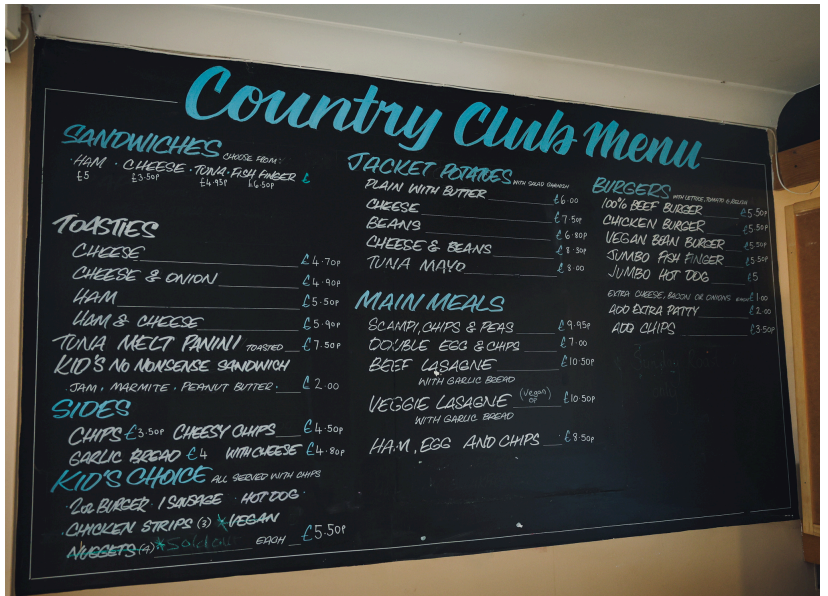 Country Club Menu
SANDWICHES CHOOSE FROM:
· HAM · CHEESE · TUNA · FISH FINGER £
£5 £3.50P £4.95P £6.50P
TOASTIES
CHEESE £4.70P
CHEESE & ONION £4.90P
HAM £5.50P
HAM & CHEESE £5.90P
TUNA MELT PANINI TOASTED £7.50P
KID'S NO NONSENSE SANDWICH
· JAM · MARMITE · PEANUT BUTTER · £2.00
SIDES
CHIPS £3.50P CHEESY CHIPS £4.50P
GARLIC BREAD £4 WITH CHEESE £4.80P
KID'S CHOICE ALL SERVED WITH CHIPS
· 2oz BURGER · 1 SAUSAGE · HOT DOG ·
· CHICKEN STRIPS (3) * VEGAN
NUGGETS (4) * Sold out EACH £5.50P
JACKET POTATOES WITH SALAD GARNISH
PLAIN WITH BUTTER £6.00
CHEESE £7.50P
BEANS £6.80P
CHEESE & BEANS £8.30P
TUNA MAYO £8.00
MAIN MEALS
SCAMPI, CHIPS & PEAS £9.95P
DOUBLE EGG & CHIPS £7.00
BEEF LASAGNE £10.50P
WITH GARLIC BREAD
VEGGIE LASAGNE (Vegan OP) £10.50P
WITH GARLIC BREAD
HAM, EGG AND CHIPS £8.50P
BURGERS WITH LETTUCE, TOMATO & RELISH
100% BEEF BURGER £5.50P
CHICKEN BURGER £5.50P
VEGAN BEAN BURGER £5.50P
JUMBO FISH FINGER £5.50P
JUMBO HOT DOG £5
EXTRA CHEESE, BACON OR ONIONS EACH £1.00
ADD EXTRA PATTY £2.00
ADD CHIPS £3.50P